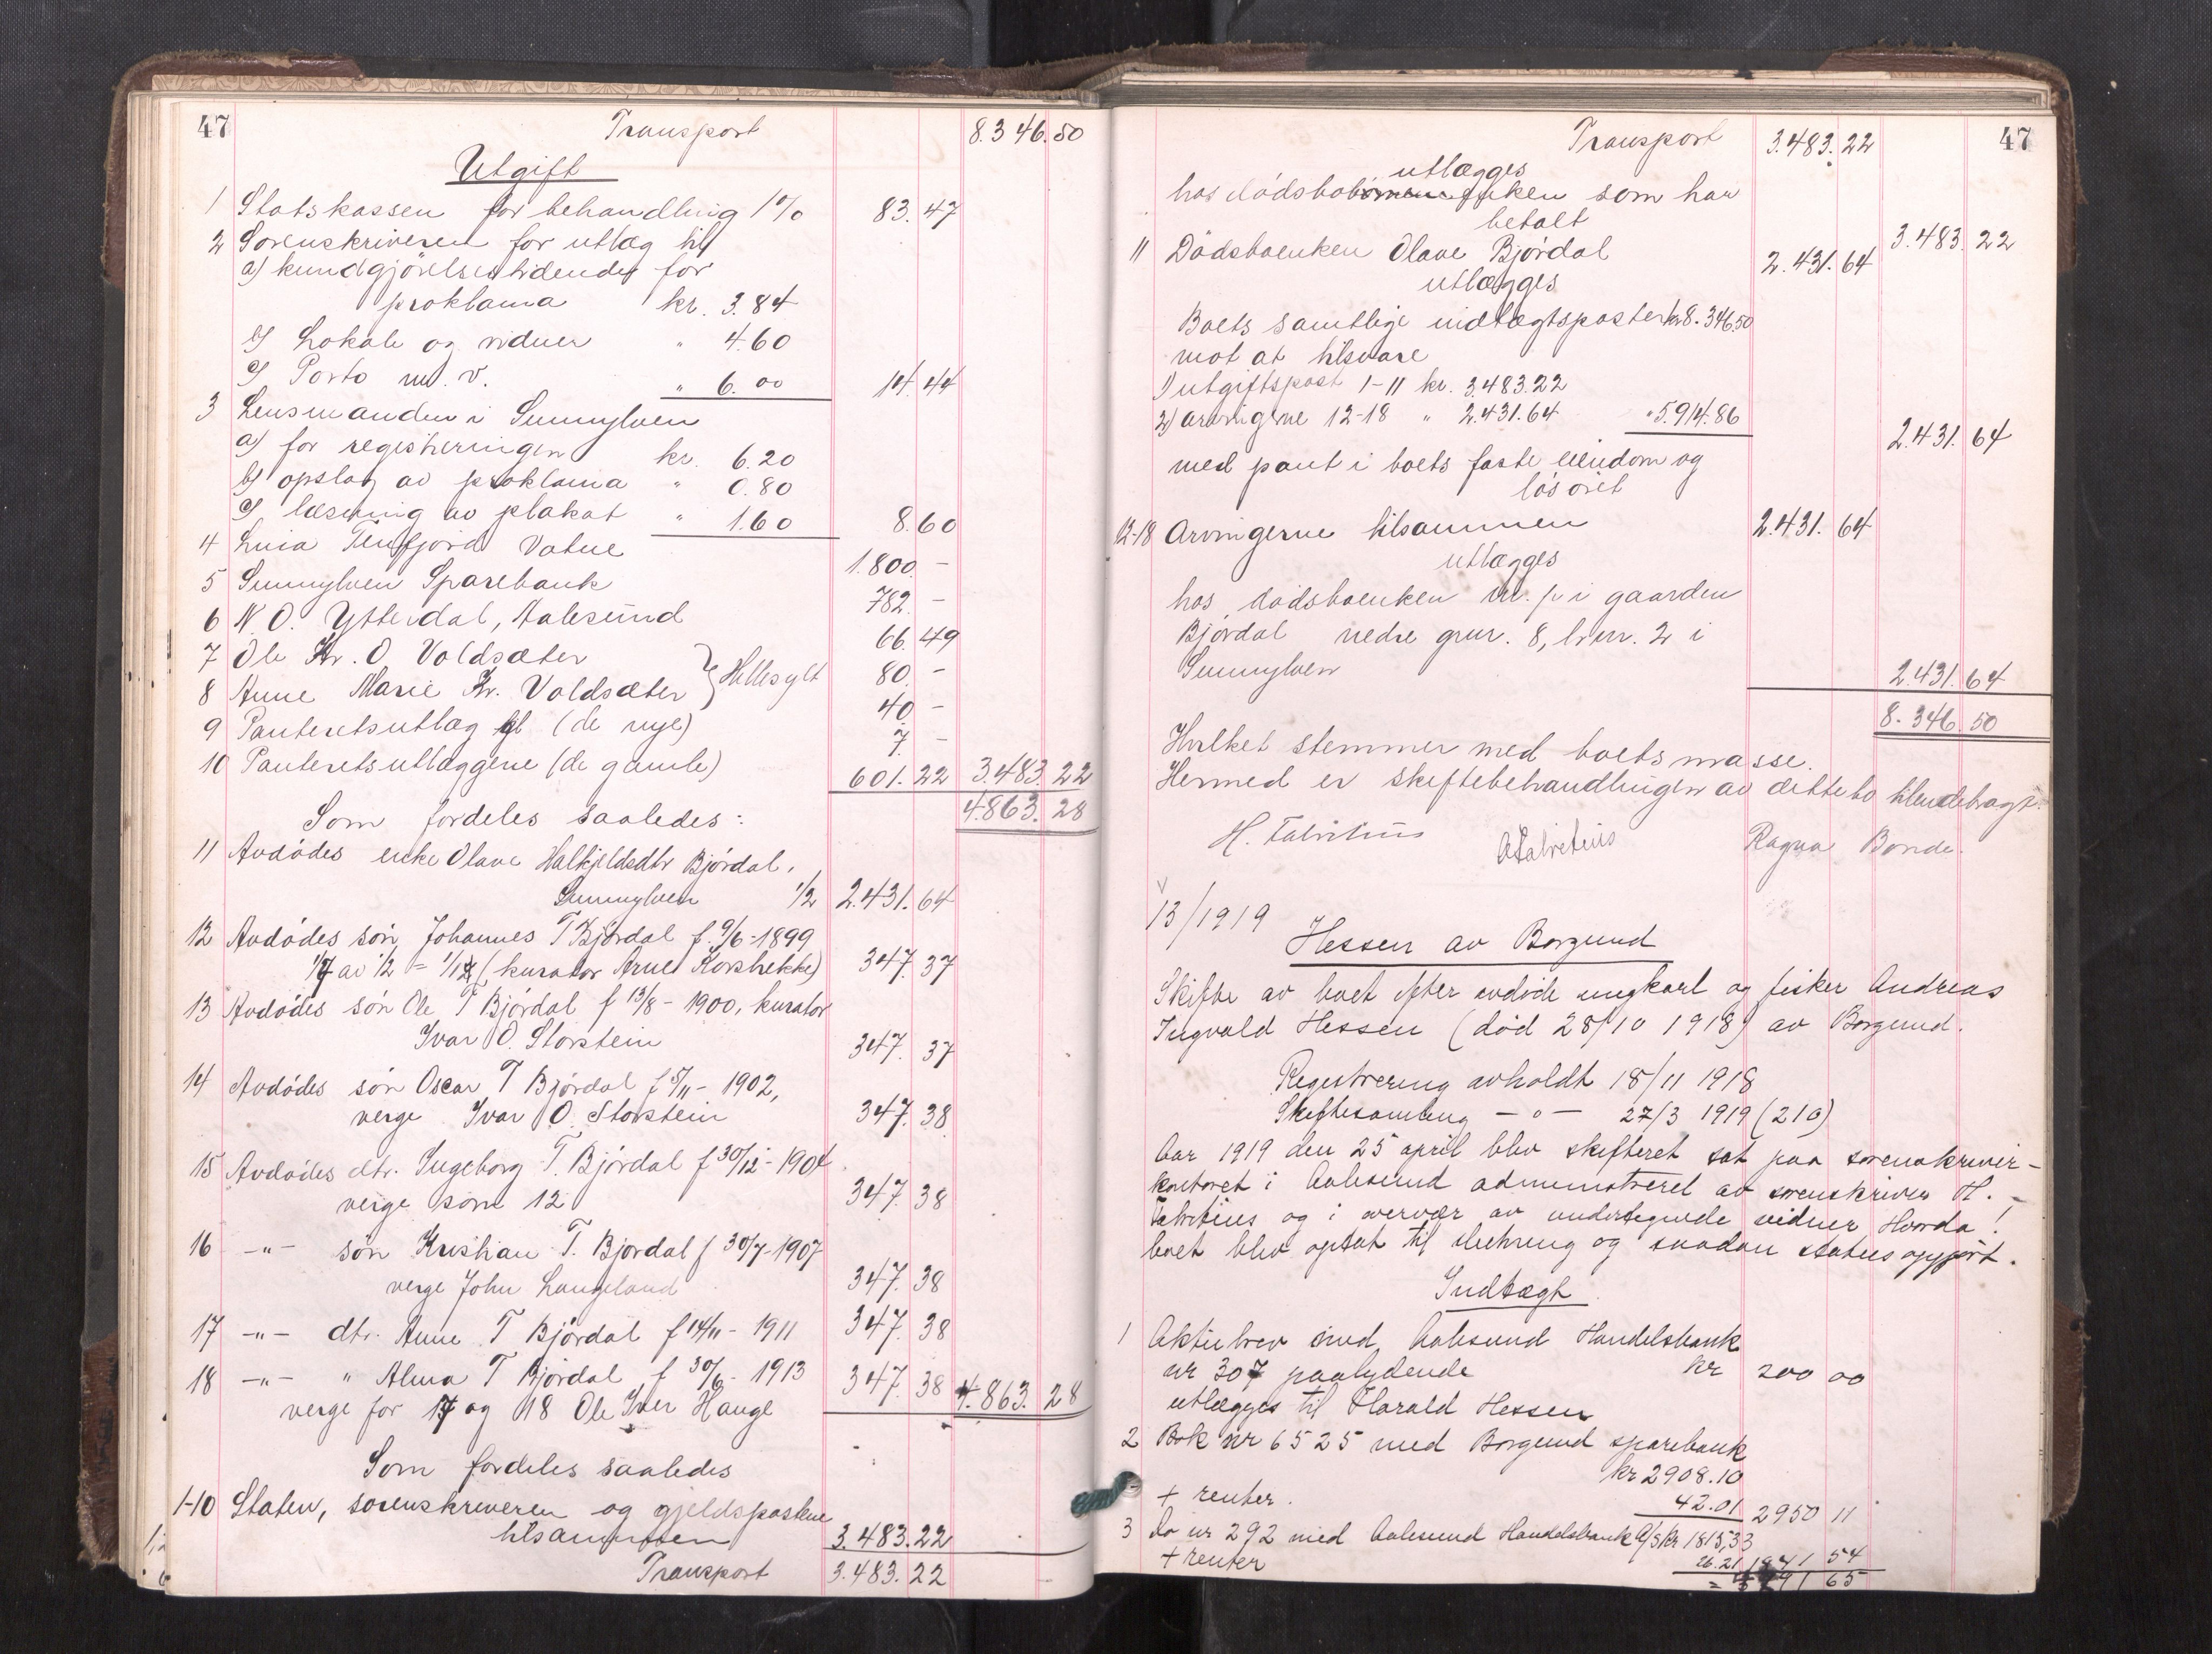 47 Transport 8.346.50
Utgift
1 Statskassen for behandling 1% 83.47
2 Sorenskriveren for utlæg til
a) kundgjörelsestidende for
proklama kr. 3.84
b) Lokale og vidner " 4.60
c) Porto m.v. " 6.00 14.44
3 Lensmanden i Sunnylven
a) for registreringen kr. 6.20
b) opslag av proklama " 0.80
c) læsning av plakat " 1.60 8.60
4 Lina Tenfjord Vatne 1.800 -
5 Sunnylven Sparebank 782. -
6 N. O. Ytterdal, Aalesund 66.49
7 Ole Kr. O Voldsæter } Hellesylt 80. -
8 Anne Marie Kr. Voldsæter 40 -
9 Panteretsutlæg gl (de nye) 7. -
10 Panteretsutlæggene (de gamle) 601.22 3.483.22
4.863.28
Som fordeles saaledes:
11 Avdödes enke Olave Halkjeldsdtr Björdal,
Sunnylven 1/2 2.431.64
12 Avdödes sön Johannes T Björdal f. 9/6-1899
1/7 av 1/2 = 1/14 (kurator Arne Korsbrekke) 347.37
13 Avdödes sön Ole T Björdal f 13/8 - 1900, kurator
Ivar O. Storstein 347.37
14 Avdödes sön Oscar T Björdal f 5/11 - 1902,
verge Ivar O. Storstein 347.38
15 Avdödes dtr. Ingeborg T. Björdal f 30/12 - 1904
verge som 12 347.38
16 -"- sön Kristian T. Björdal f 30/7-1907
verge John Langeland 347.38
17 -"- dtr. Anne T Björdal f 14/11 - 1911 347.38
18 -"- " Alma T Björdal f 30/6 - 1913 347.38 4.863.28
verge for 17 og 18 Ole Iver Hauge
Som fordeles saaledes
1-10 Staten, sorenskriveren og gjeldspostene
tilsammen 3.483.22
Transport 3.483.22
Transport 3.483.22 47
utlægges
hos dödsboenken som har
betalt 3.483.22
11 Dödsboenken Olave Björdal 2.431.64
utlægges
Boets samtlige indtægtsposter kr 8.346.50
mot at tilsvare
1) utgiftspost 1-11 kr. 3.483.22
2) arvingerne 12-18 " 2.431.64 " 5.914.86
2.431.64
med pant i boets faste eiendom og
lösöre
12-18 Arvingerne tilsammen 2.431.64
utlægges
hos dödsboenken m. p. i gaarden
Björdal nedre gnr. 8, brnr. 2 i
Sunnylven 2.431.64
8.346.50
Hvilket stemmer med boets masse.
Hermed er skiftebehandlingen av dette bo tilendebragt.
H. Fabritius AFabritius Ragna Bonde.
V
13/1919
Hessen av Borgund
Skifte av boet efter avdöde ungkarl og fisker Andreas
Ingvald Hessen (död 28/10 1918) av Borgund.
Registrering avholdt 18/11 1918
Skiftesamling - " - 27/3 1919 (210)
Aar 1919 den 25 april blev skifteret sat paa sorenskriver-
kontoret i Aalesund administreret av sorenskriver H.
Fabritius og i overvær av undertegnede vidner. Hvorda!
boet blev optat til slutning og saadan status opgjört.
Indtægt
1 Aktiebrev med Aalesund Handelsbank
nr 307 paalydende kr 200 00
utlægges til Harald Hessen
2 Bok nr 6525 med Borgund sparebank
kr 2908.10
+ renter. 42.01 2950 11
3 do nr 292 med Aalesund Handelsbank A/S kr 1815,33
+ renter 26.21 1841 54
= 4791 65